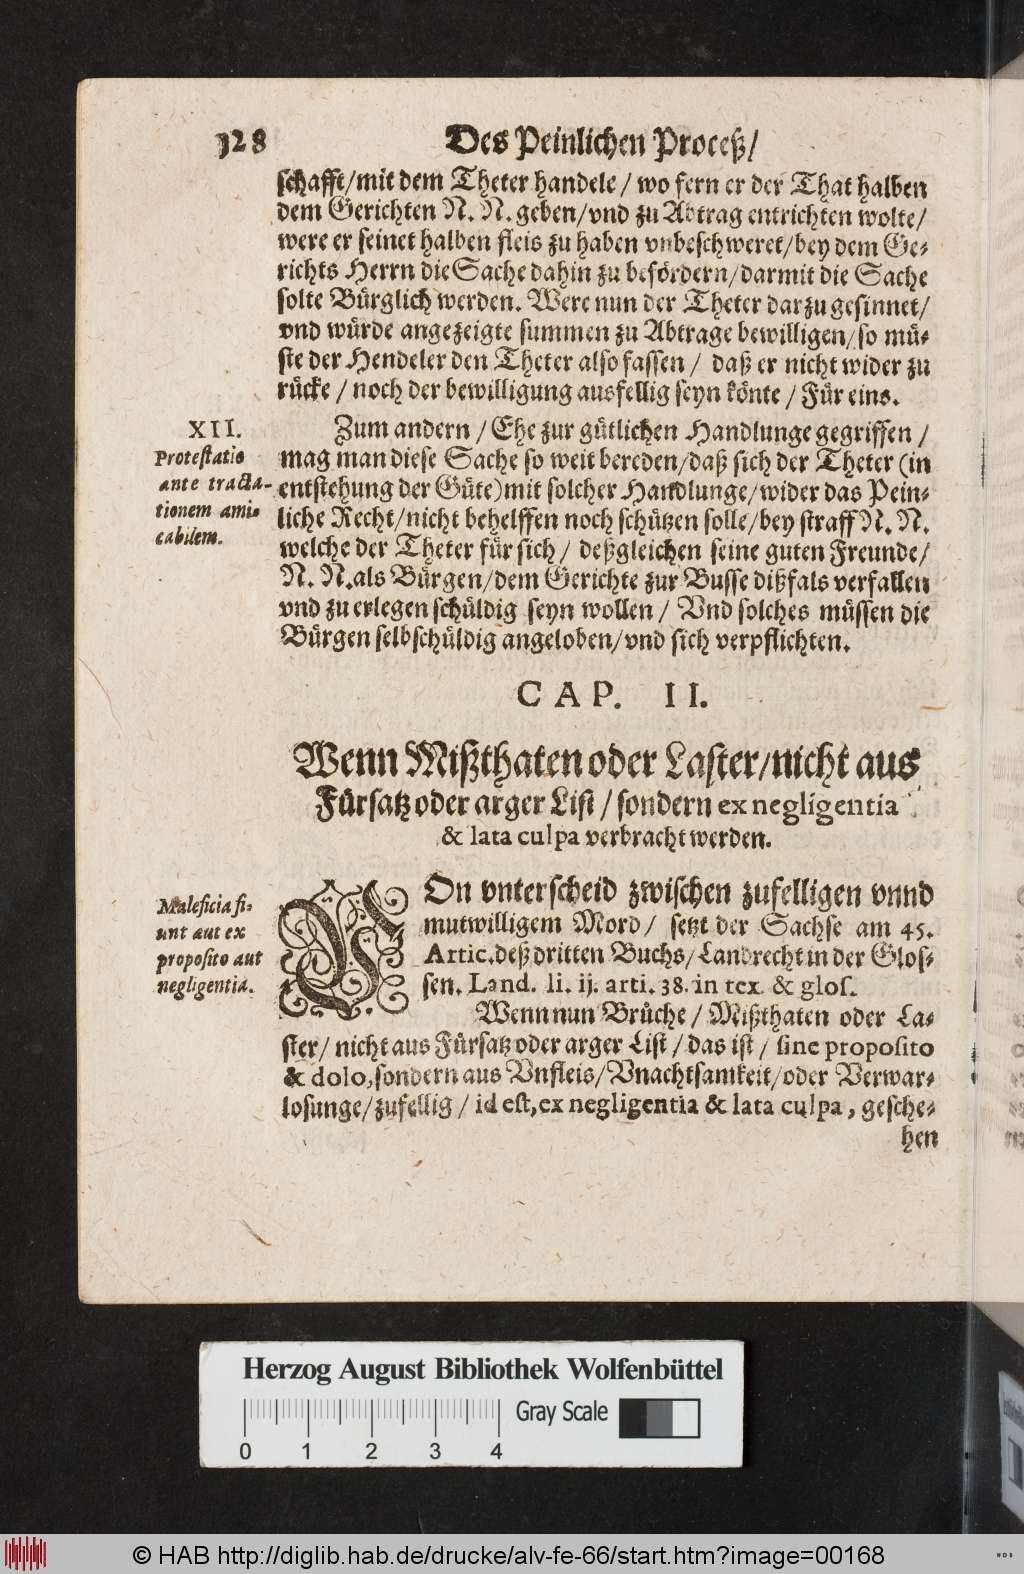 128
Des Peinlichen Proceß/
schafft/mit dem Theter handele / wo fern er der That halben
dem Gerichten N. N. geben/vnd zu Abtrag entrichten wolte/
were er seinet halben fleis zu haben vnbeschweret/bey dem Ge-
richts Herrn die Sache dahin zu befördern/darmit die Sache
solte Bürglich werden. Were nun der Theter darzu gesinnet/
vnd würde angezeigte summen zu Abtrage bewilligen/so mü-
ste der Hendeler den Theter also fassen / daß er nicht wider zu
rücke / noch der bewilligung ausfellig seyn könte / Für eins.
XII.
Protestatio
ante tracta-
tionem ami-
cabilem.
Zum andern / Ehe zur gütlichen Handlunge gegriffen /
mag man diese Sache so weit bereden/daß sich der Theter (in
entstehung der Güte) mit solcher Handlunge/wider das Pein-
liche Recht/nicht behelffen noch schützen solle/bey straff N. N.
welche der Theter für sich / deßgleichen seine guten Freunde/
N. N. als Bürgen/dem Gerichte zur Busse dißfals verfallen
vnd zu erlegen schüldig seyn wollen / Vnd solches müssen die
Bürgen selbschüldig angeloben/vnd sich verpflichten.
CAP. II.
Wenn Mißthaten oder Laster/nicht aus
Fürsatz oder arger List / sondern ex negligentia
& lata culpa verbracht werden.
Maleficia fi-
unt aut ex
proposito aut
negligentia.
VOn vnterscheid zwischen zufelligen vnnd
mutwilligem Mord / setzt der Sachse am 45.
Artic. deß dritten Buchs/Landrecht in der Glos-
sen. Land. li. ij. arti. 38. in tex. & glos.
Wenn nun Brüche / Mißthaten oder La-
ster/ nicht aus Fürsatz oder arger List / das ist / sine proposito
& dolo, sondern aus Vnfleis/Vnachtsamkeit/oder Verwar-
losunge/zufellig / id est, ex negligentia & lata culpa, gesche-
hen
Herzog August Bibliothek Wolfenbüttel
0 1 2 3 4
Gray Scale
© HAB http://diglib.hab.de/drucke/alv-fe-66/start.htm?image=00168